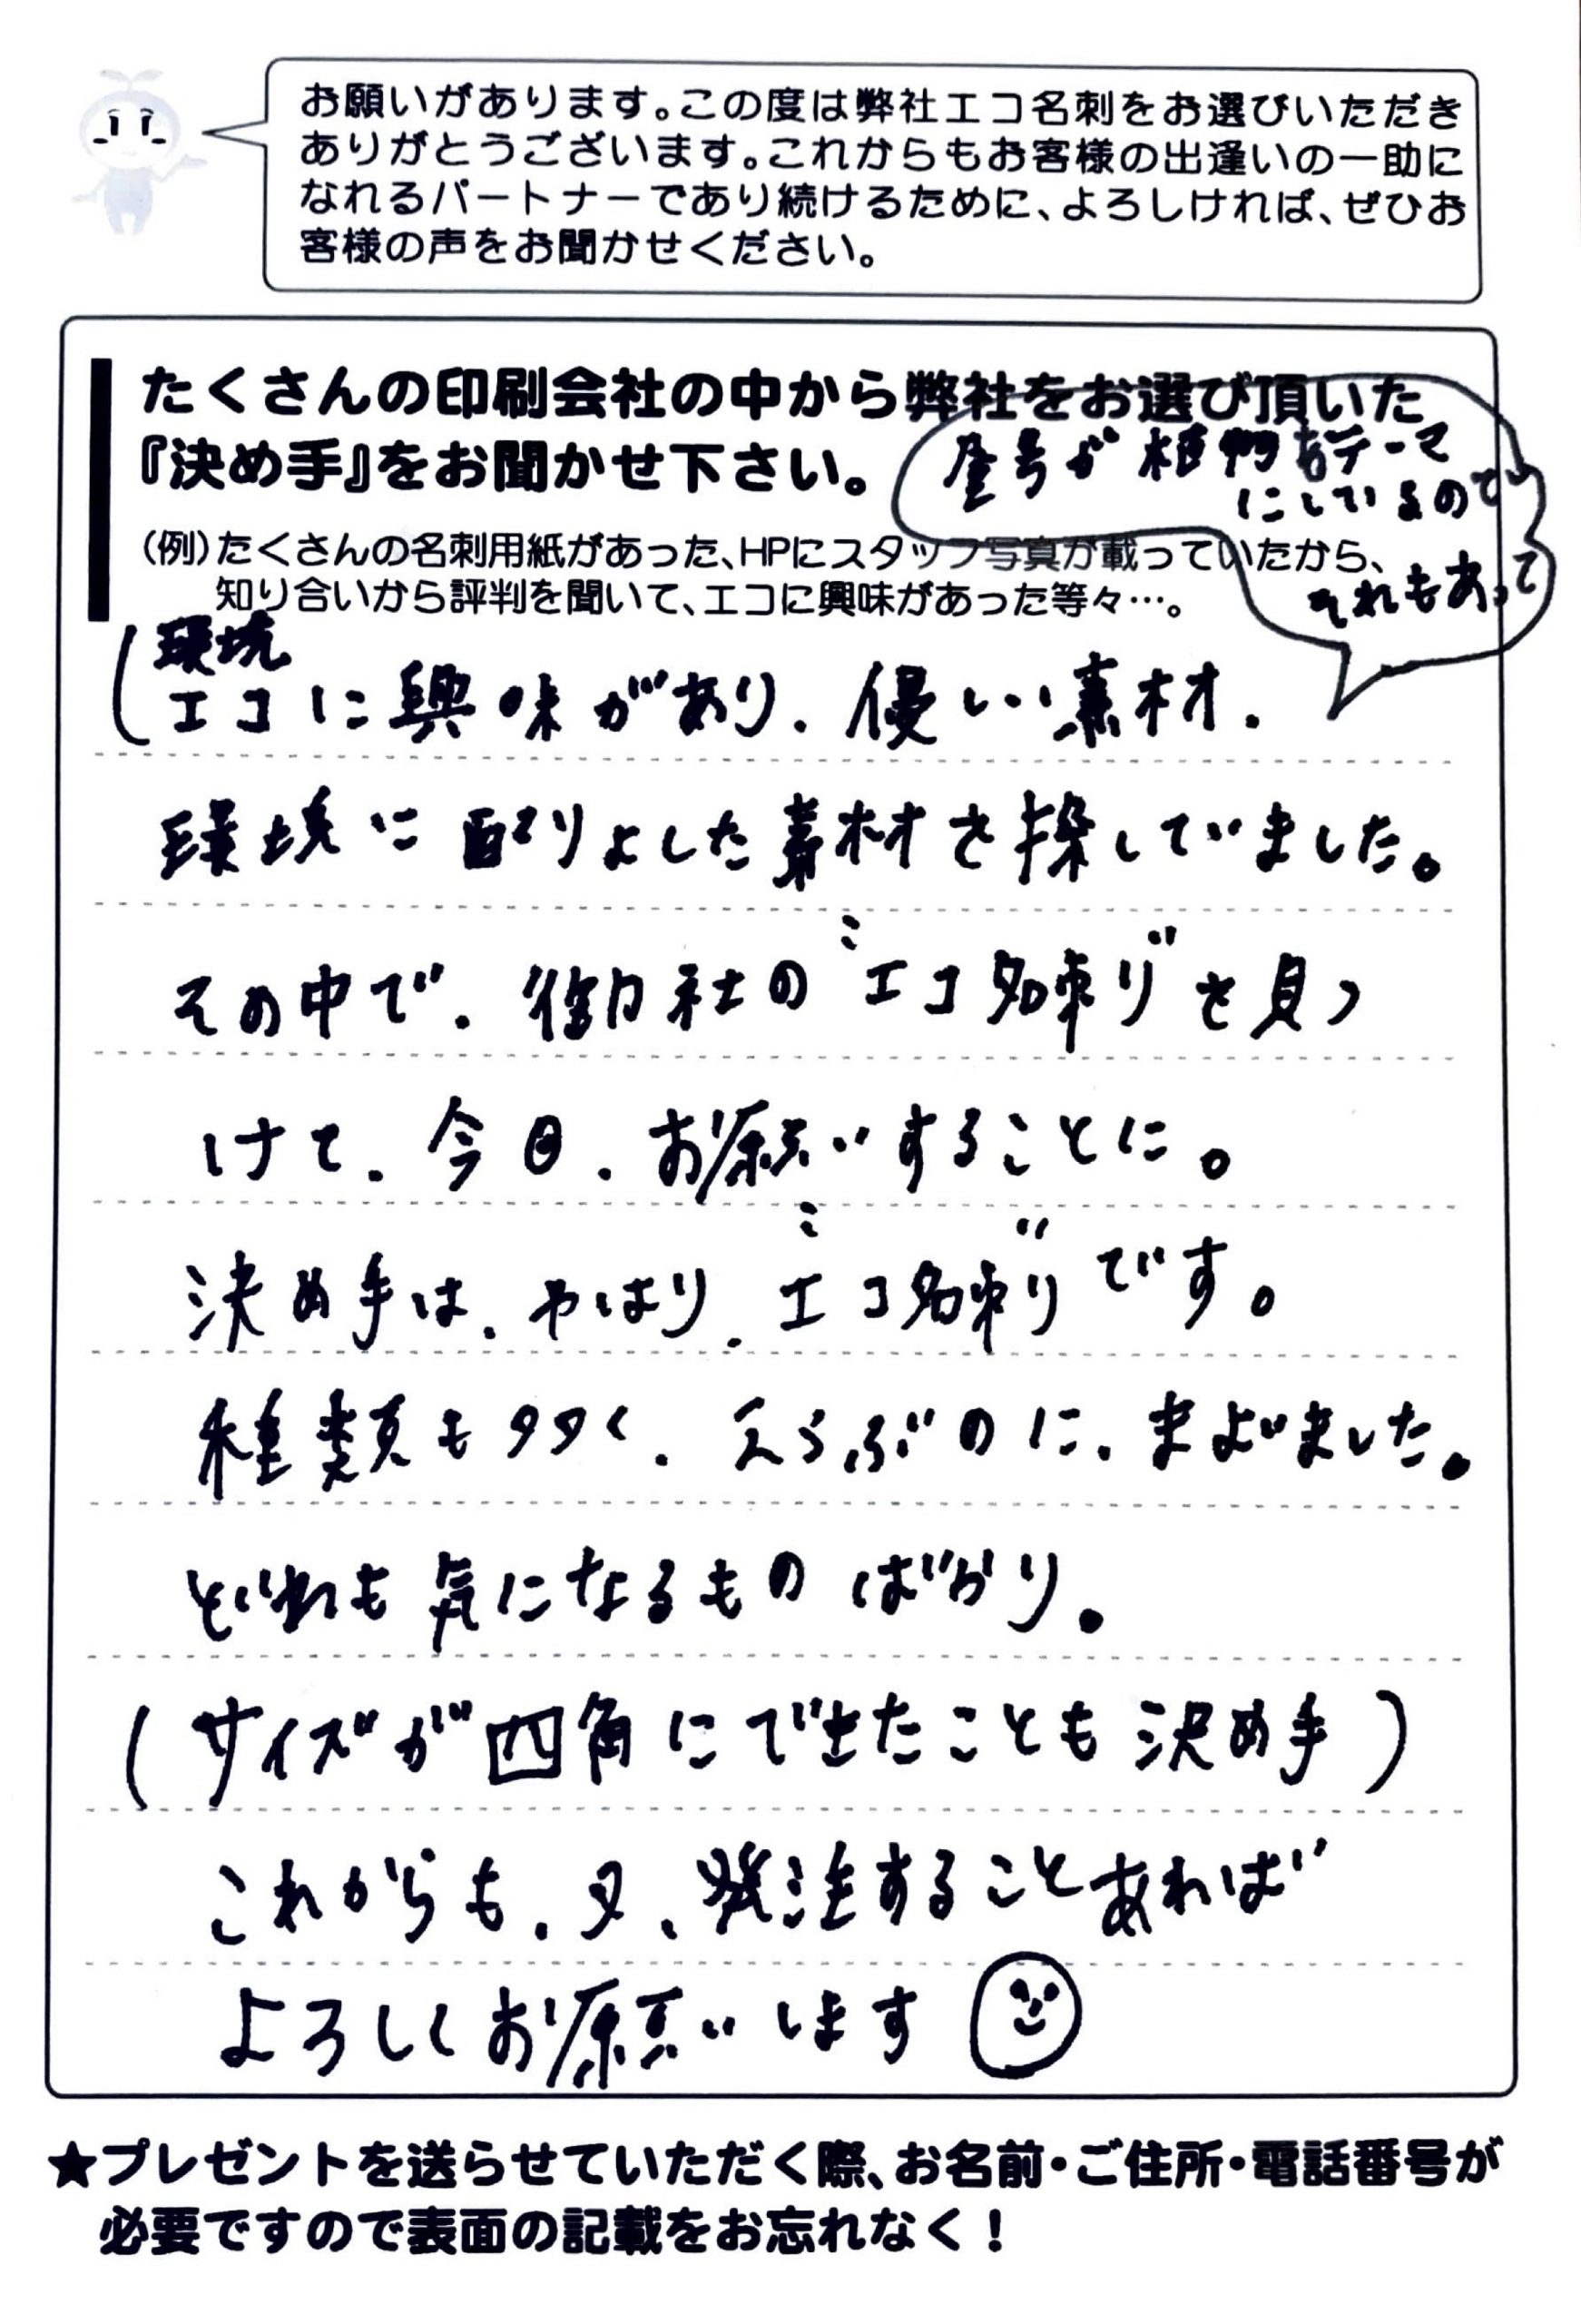 お願いがあります。この度は弊社エコ名刺をお選びいただき
ありがとうございます。これからもお客様の出逢いの一助に
なれるパートナーであり続けるために、よろしければ、ぜひお
客様の声をお聞かせください。
たくさんの印刷会社の中から弊社をお選び頂いた
『決め手』をお聞かせ下さい。
屋号が植物をテーマ
にしているので
それもあって
（例）たくさんの名刺用紙があった、HPにスタッフ写真が載っていたから、
知り合いから評判を聞いて、エコに興味があった等々…。
環境
(エコに興味があり、優しい素材、
環境に配りょした素材を探していました。
その中で、御社の"エコ名刺"を見つ
けて、今回、お願いすることに。
決め手は、やはり、"エコ名刺"です。
種類も多く、えらぶのに、まよいました。
どれも気になるものばかり。
(サイズが四角にできたことも決め手)
これからも、又、発注することあれば
よろしくお願いします
★プレゼントを送らせていただく際、お名前・ご住所・電話番号が
必要ですので表面の記載をお忘れなく！